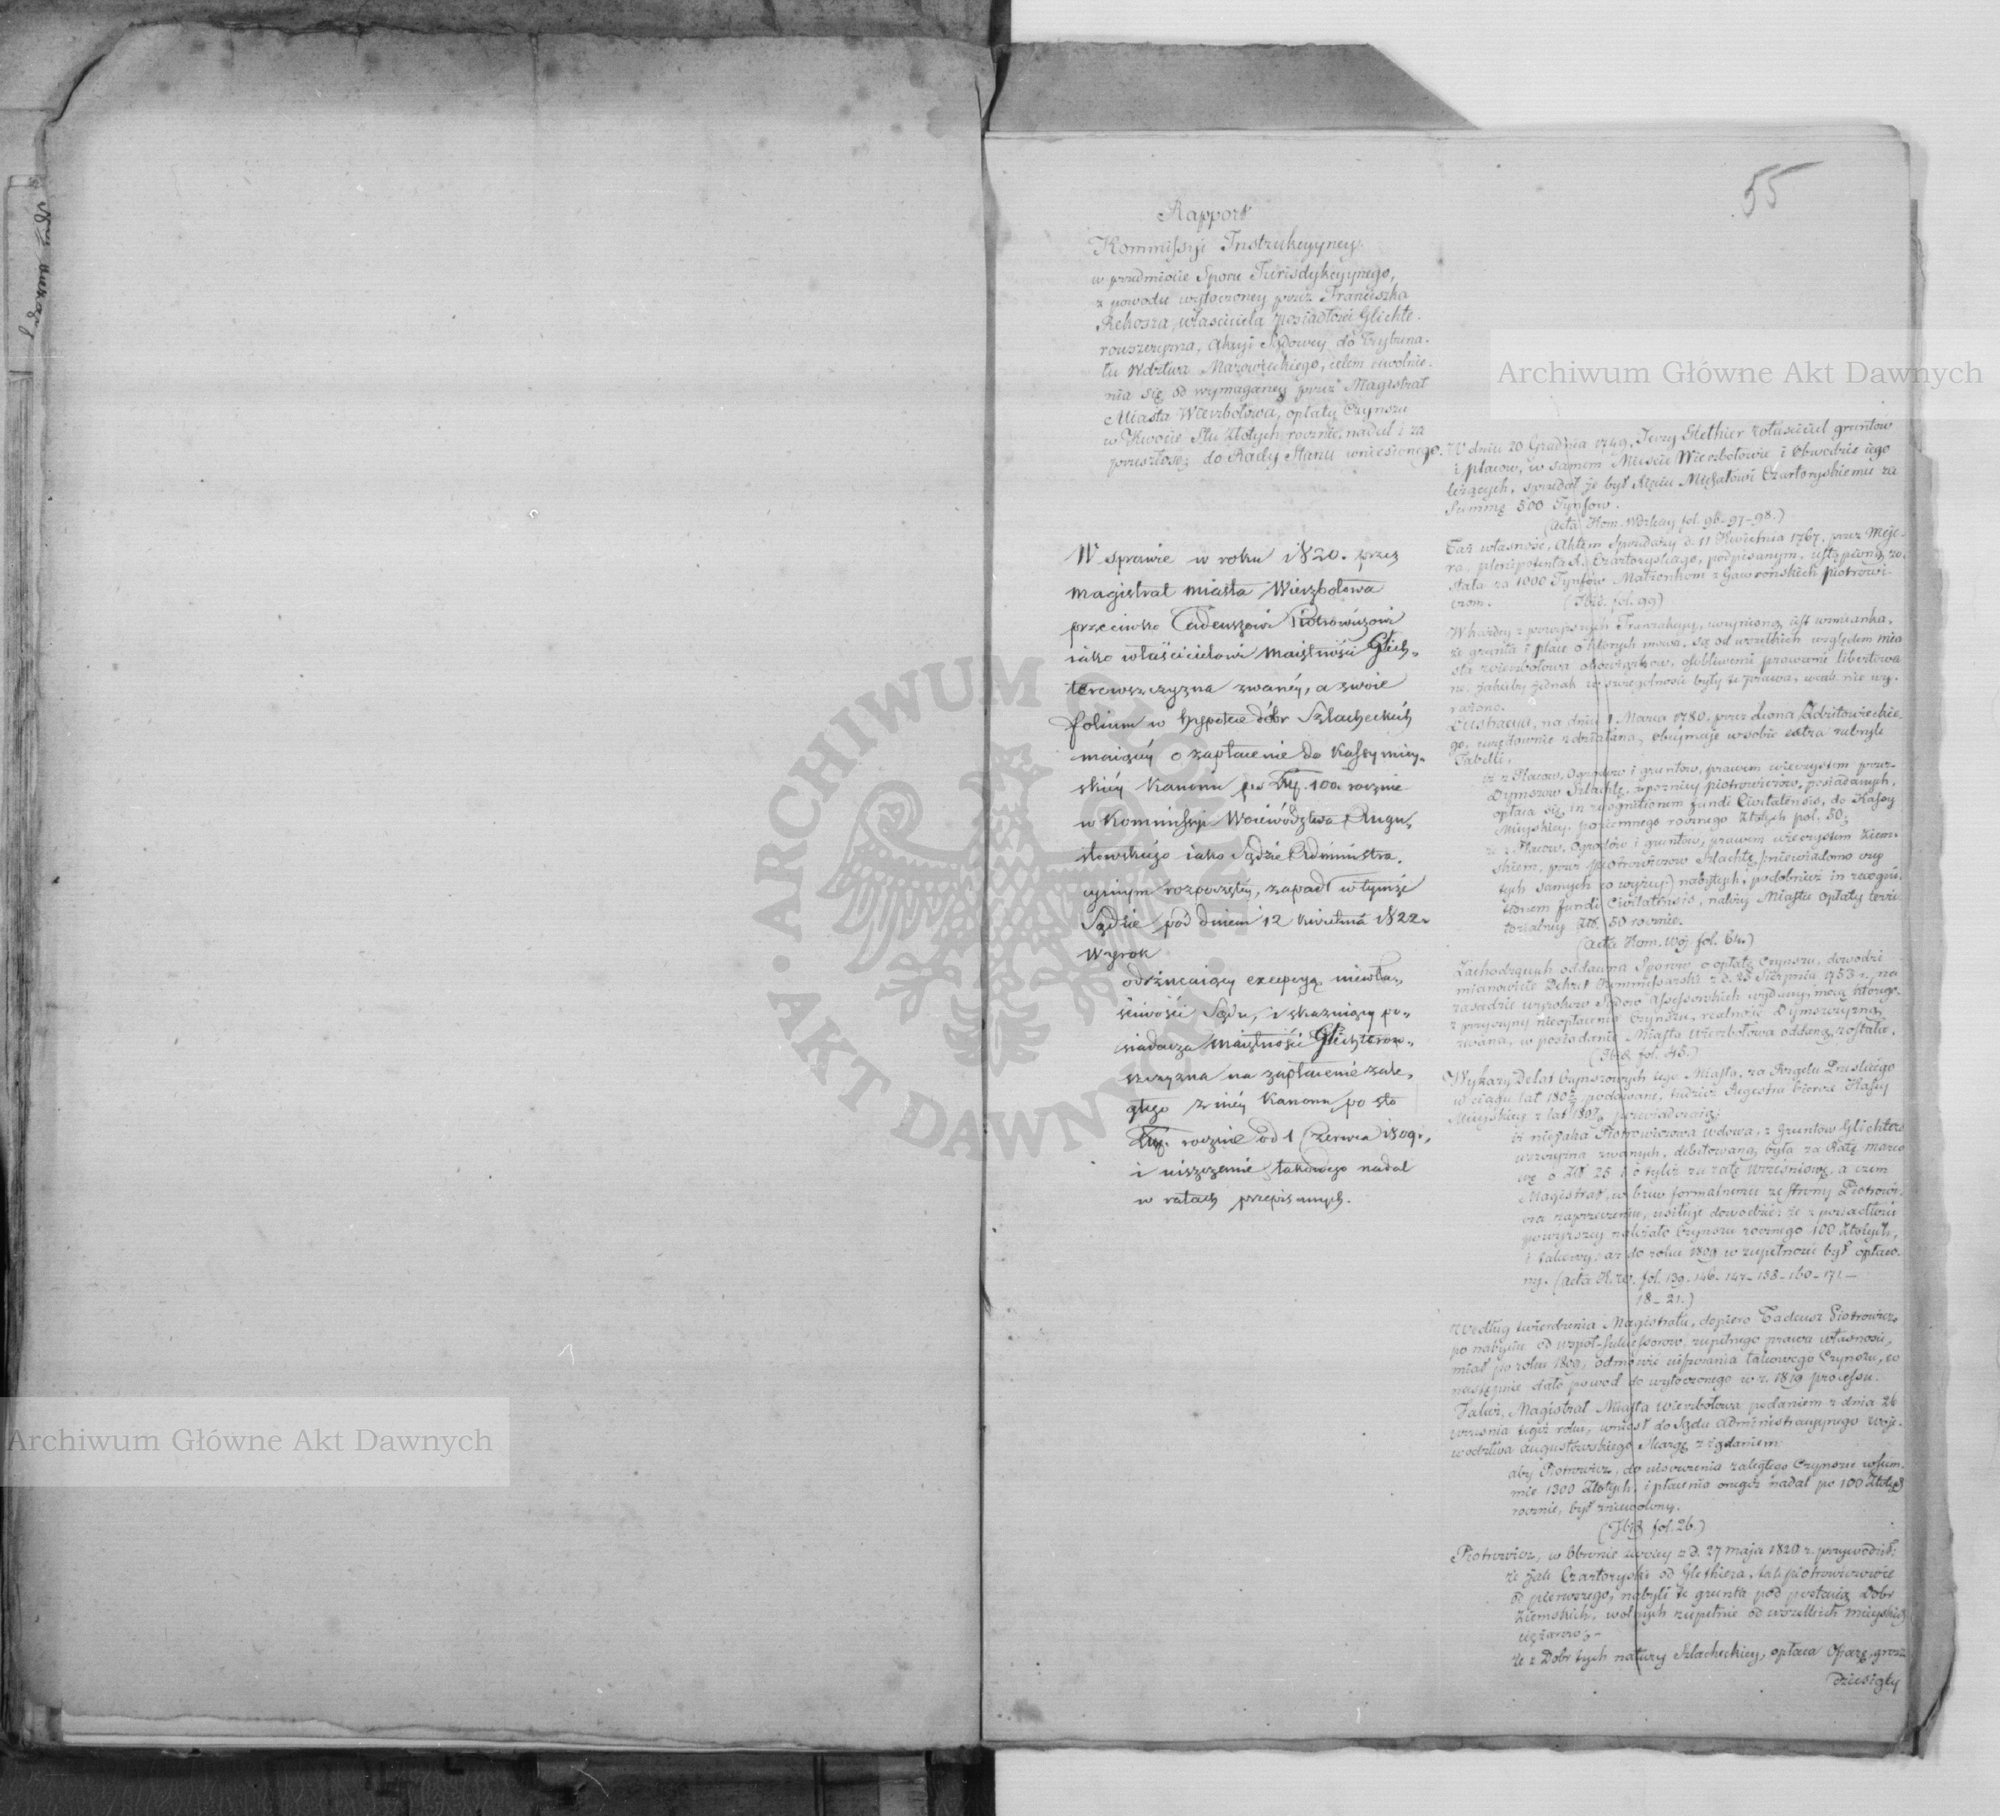 55
Rapport
Kommissyi Instrukcyyney
w przedmiocie Sporu Jurisdykcyynego,
z powodu wytoczoney przez Franciszka
Rekosza, właściciela posiadłości Glichte-
rowszczyzna, Akcyi Sądowey do Trybuna-
łu Wdztwa Mazowieckiego, celem uwolnie-
nia się od wymaganey przez Magistrat
Miasta Wierzbołowa, opłaty Czynszu
w kwocie Stu Złotych rocznie, nadal i za
przeszłość, do Rady Stanu wniesionego.
W sprawie w roku 1820. przez
magistrat miasta Wierzbołowa
przeciwko Tadeuszowi Piotrowiczowi
iako właścicielowi maiętności Glich-
terowszczyzna zwaney, a swoie
folium w hypotece dóbr Szlacheckich
maiącey o zapłacenie do Kassy miey-
skiey Kanonu po Złp. 100. rocznie
w Kommissyi Woiewództwa Augu-
stowskiego iako Sądzie Administra-
cyinym rozpoczętey, zapadł w tymże
Sądzie pod dniem 12 kwietnia 1822.
wyrok
odrzucaiący excepcyą niewła-
ściwości Sądu, i skazuiący po-
siadacza maiętności Glichterow-
szczyzna na zapłacenie zale-
głego z niey Kanonu po sto
Złp. rocznie od 1 Czerwca 1809.,
i uiszczenie takowego nadal
w ratach przepisanych.
W dniu 20 Grudnia 1749, Jerzy Glethier właściciel gruntow
i placow, w samem Mieście Wierzbołowie i obwodzie iego
leżących, sprzedał je był Xięciu Michałowi Czartoryskiemu za
Summę 500 Tynfow.
(Acta Kom. Wdzkiey fol. 96-97-98.)
Taż własność, Aktem Sprzedaży d. 11 Kwietnia 1767, przez Mejc-
ra, plenipotenta X. Czartoryskiego, podpisanym, ustąpioną zo-
stała za 1000 Tynfow Małżonkom z Gaworońskich Piotrowi-
czom. (Ibid. fol. 99)
W każdey z powyższych Tranzakcyy, uczynioną jest wzmianka,
że grunta i place o których mowa, są od wszelkich względem mia-
sta Wierzbołowa obowiązkow, osobliwemi prawami libertowa-
ne. Jakieby jednak w szczegolności były te prawa, wcale nie wy-
rażono.
Lustracya, na dniu 1 Marca 1780, przez Leona Zdzitowieckie-
go, urzędownie zdziałana, obejmuje w sobie extra rubryk
Tabelli,
iż z Placow, Ogrodow i gruntow, prawem wieczystem przez
Dymszow Szlachtę, a poźniey Piotrowiczow, posiadanych,
opłaca się, in recognitionem fundi Civitatensis, do Kassy
Mieyskiey, poziemnego rocznego Złotych pol. 50;
iż z Placow, Ogrodow i gruntow, prawem wieczystem Ziem-
skiem, przez Piotrowiczow Szlachtę (niewiadomo czy
tych samych co wyżey) nabytych, podobnież in recogni-
tionem fundi Civitatensis, należy Miastu opłaty teri-
torialney Złt. 50 rocznie.
(Acta Kom. Woj. fol. 64.)
Zachodzących oddawna Sporow o opłatę czynszu, dowodzi
mianowicie Dekret Kommissarski z d. 23 Sierpnia 1753 r. na
zasadzie wyrokow Sądow Assessorskich wydany, mocą ktorego
z przyczyny nieopłacenia Czynszu, realność Dymszczyzną
zwana, w posiadanie Miasta Wierzbołowa oddaną została.
(Ibid. fol. 45.)
Wykazy Delat Czynszowych tego Miasta, za Rządu Pruskiego
w ciągu lat podawane, tudzież Regestra biercze Kassy
Mieyskiey z lat poświadczaią:
iż niejaka Piotrowiczowa wdowa, z gruntow Glichtero-
wszczyzna zwanych, debitowaną była za Ratę marco-
wą o Złt 25 i o tyleż za ratę Wrześniową, a czem
Magistrat, w brew formalnemu ze strony Piotrowi-
cza zaprzeczeniu, usiłuje dowodzić: że z posiadłości
powyższey należało Czynszu rocznego 100 Złotych,
i takowy, aż do roku 1809 w zupełności był opłaca-
ny. (Acta K. W. fol. 139-146-147-158-160-171-
18-21.)
Według twierdzenia Magistratu, dopiero Tadeusz Piotrowicz
po nabyciu od wspoł-Sukcessorow zupełnego prawa własności,
miał po roku 1809, odmowić uiszczania takowego Czynszu, co
następnie dało powod do wytoczonego w r. 1819 processu.
Jakoż, Magistrat Miasta Wierzbołowa podaniem z dnia 26
Września tegoż roku, wniosł do Sądu Administracyynego Woje-
wodztwa Augustowskiego Skargę z żądaniem:
aby Piotrowicz, do uiszczenia zaległego Czynszu w sum-
mie 1300 Złotych, i płacenia onegoż nadal po 100 Złotych
rocznie, był zniewolony.
(Ibid. fol. 26.)
Piotrowicz, w Obronie swoiey z d. 27 maja 1820 r. przywodził:
że jak Czartoryski od Glethiera, tak Piotrowiczowie
od pierwszego, nabyli te grunta pod postacią Dobr
Ziemskich, wolnych zupełnie od wszelkich mieyskich
ciężarow;-
że z Dobr tych natury Szlacheckiey, opłaca Ofiarę, grosz
dziesiąty
Archiwum Główne Akt Dawnych
Archiwum Główne Akt Dawnych
ARCHIWUM GŁÓWNE AKT DAWNYCH